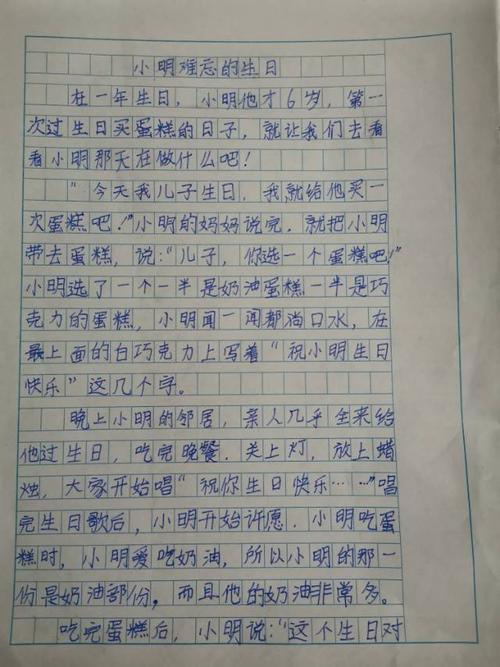 小明难忘的生日
在一年生日，小明他才6岁，第一
次过生日买蛋糕的日子，就让我们去看
看小明那天在做什么吧！
"今天我儿子生日，我就给他买一
次蛋糕吧！"小明的妈妈说完，就把小明
带去蛋糕，说："儿子，你选一个蛋糕吧！"
小明选了一个一半是奶油蛋糕一半是巧
克力的蛋糕，小明闻一闻都淌口水，在
最上面的白巧克力上写着"祝小明生日
快乐"这几个字。
晚上小明的邻居，亲人几乎全来给
他过生日，吃完晚餐．关上灯，放上蜡
烛，大家开始唱"祝你生日快乐……"唱
完生日歌后，小明开始许愿．小明吃蛋
糕时，小明爱吃奶油，所以小明的那一
份是奶油部份，而且他的奶油非常多。
吃完蛋糕后，小明说："这个生日对